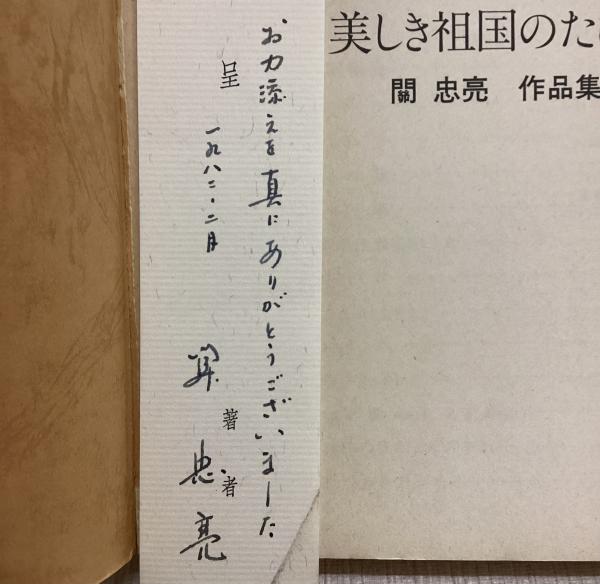 美しき祖国のた
関 忠亮 作品集
お力添えを真にありがとうございました
呈
一九八二・二月
著者
関 忠亮